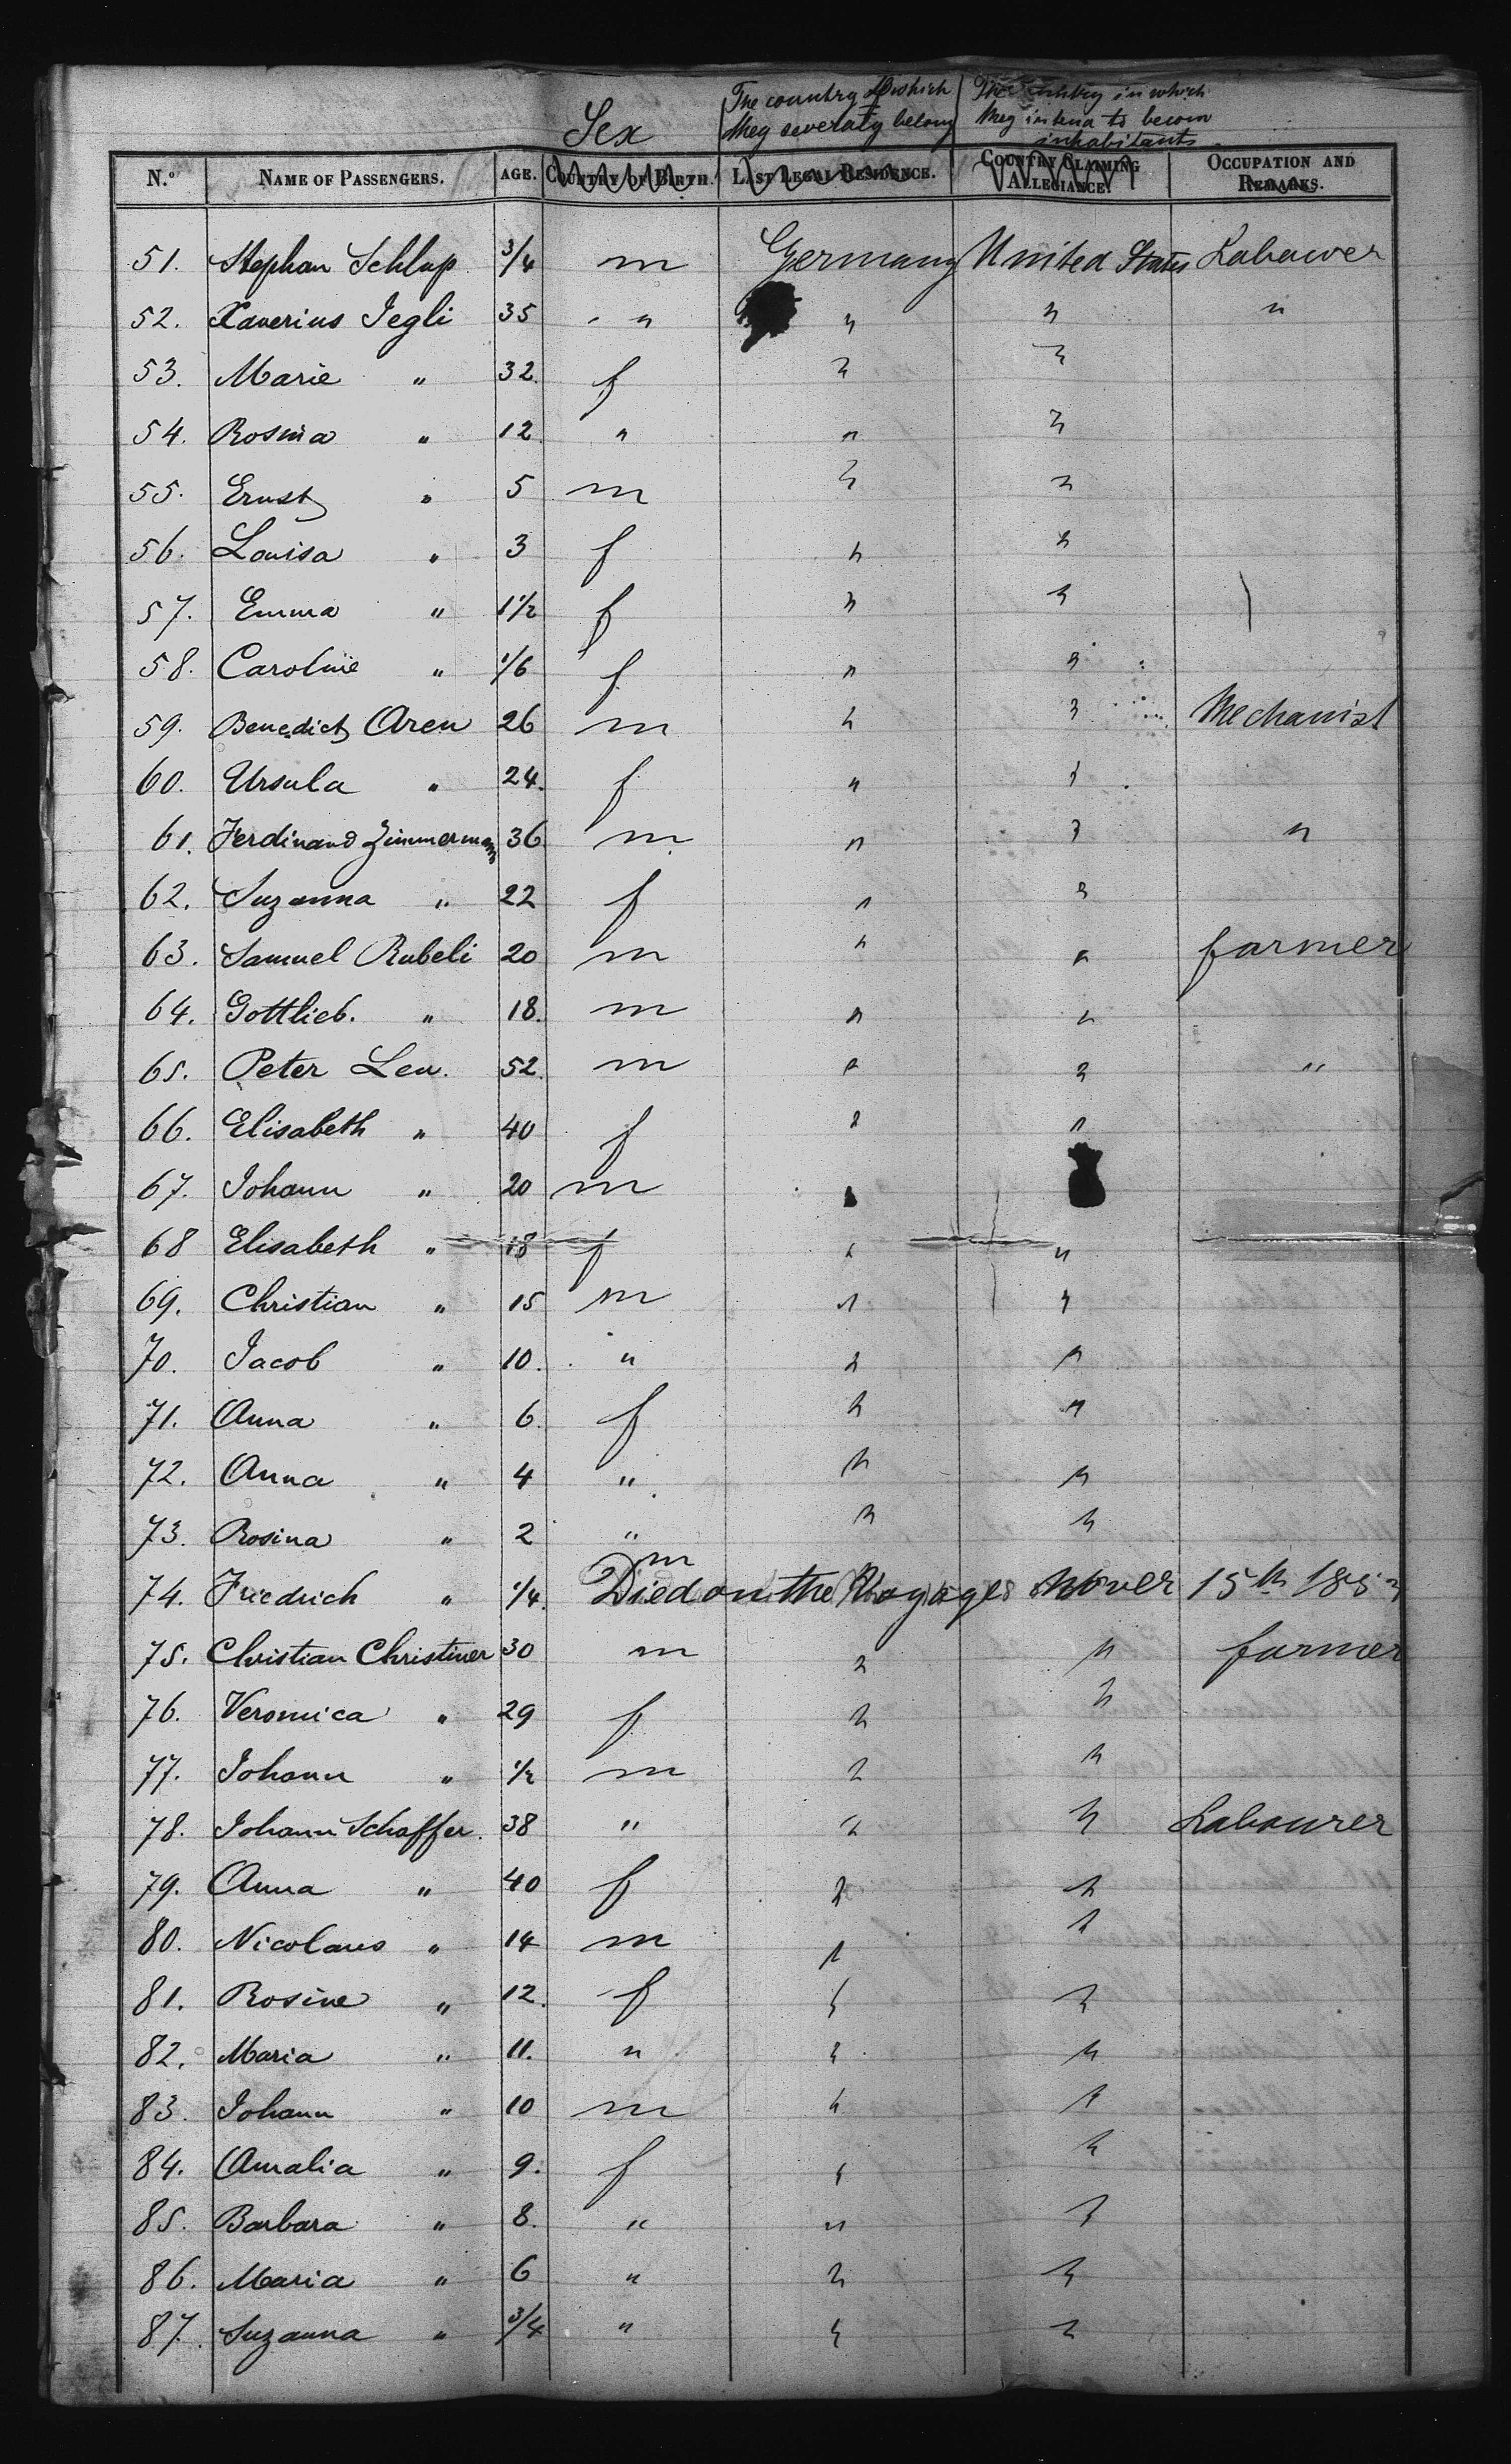 Sex
The country of which they severally belong
The country in which they intend to become inhabitants
N.º NAME OF PASSENGERS. AGE. COUNTRY OF BIRTH. LAST LEGAL RESIDENCE. COUNTRY CLAIMING ALLEGIANCE. OCCUPATION AND REMARKS.
51. Stephan Schlup 3/4 m Germany United States Labawer
52. Xaverius Jegli 35 " " " "
53. Marie " 32. f " "
54. Rosina " 12 " " "
55. Ernst " 5 m " "
56. Louisa " 3 f " "
57. Emma " 1 1/2 f " "
58. Caroline " 1/6 f " "
59. Benedict Aren 26 m " " Mechanist
60. Ursula " 24. f " "
61. Ferdinand Zimmermann 36 m " " "
62. Suzanna " 22 f " "
63. Samuel Rubeli 20 m " " farmer
64. Gottlieb. " 18. m " "
65. Peter Leu. 52. m " " "
66. Elisabeth " 40 f " "
67. Johann " 20 m "
68 Elisabeth " 18 f " "
69. Christian " 15 m " "
70. Jacob " 10. " " "
71. Anna " 6. f " "
72. Anna " 4 " " "
73. Rosina " 2 " " "
74. Friedrich " 1/4. m Died on the Voyage 15th
75. Christian Christiner 30 m " " farmer
76. Veronica " 29 f " "
77. Johann " 1/2 m " "
78. Johann Schaffer. 38 " " " Labourer
79. Anna " 40 f " "
80. Nicolaus " 14 m " "
81. Rosine " 12. f " "
82. Maria " 11. " " "
83. Johann " 10 m " "
84. Amalia " 9. f " "
85. Barbara " 8. " " "
86. Maria " 6 " " "
87. Suzanna " 3/4 " " "